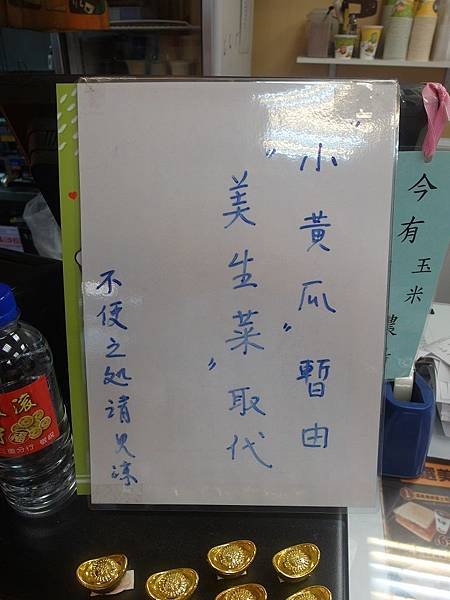 "小黃瓜"暫由
"美生菜"取代
不便之処請見諒
今有玉米濃
滾